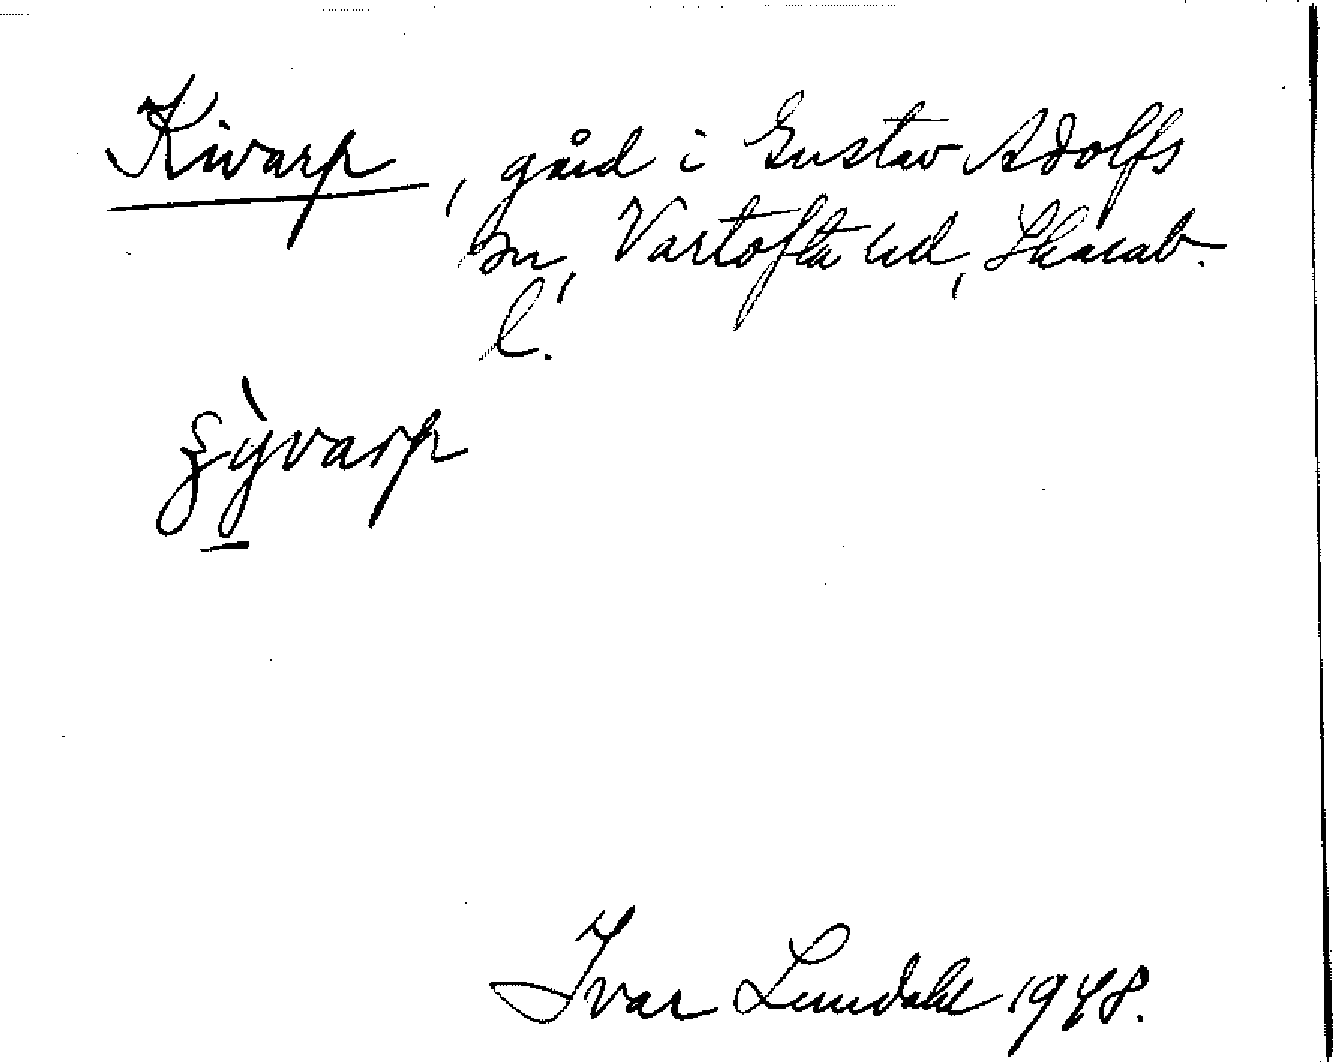 Kivarp, gård i Gustav Adolfs
sn, Vartofta hd, Skarab.
l.
ʒỳvarp
Ivar Lundahl 1948.